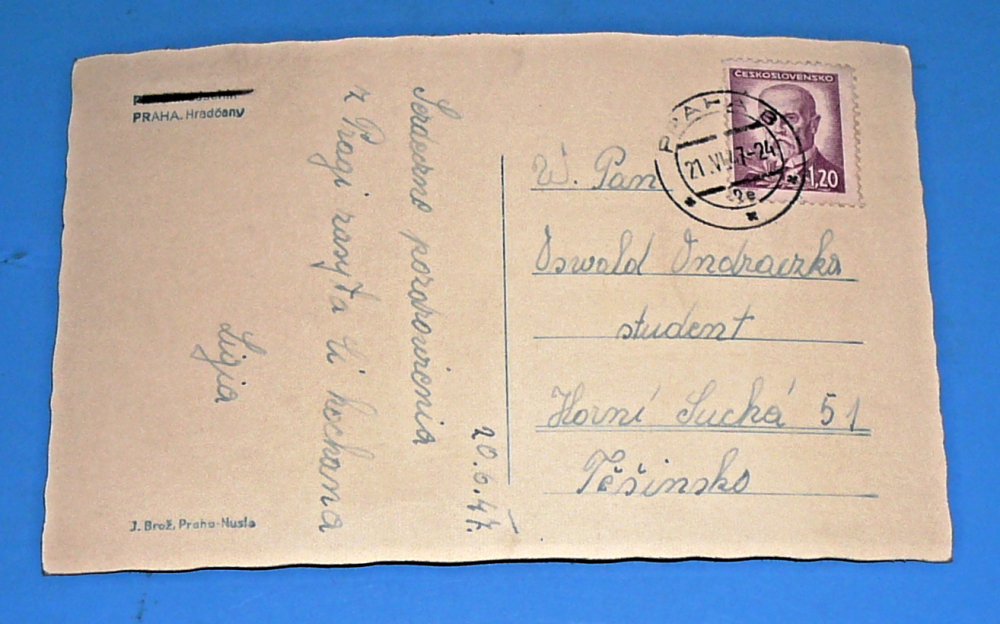 PRAHA. Hradčany
20.6.47.
Serdeczne pozdrowienia
z Pragi zasyła Ci kochana
Ligia
J. Brož, Praha-Nusle
ČESKOSLOVENSKO
1,20
PRAHA 8
21.VI.47-24
W. Pan
Oswald Ondraczka
student
Horní Suchá 51
Těšinsko